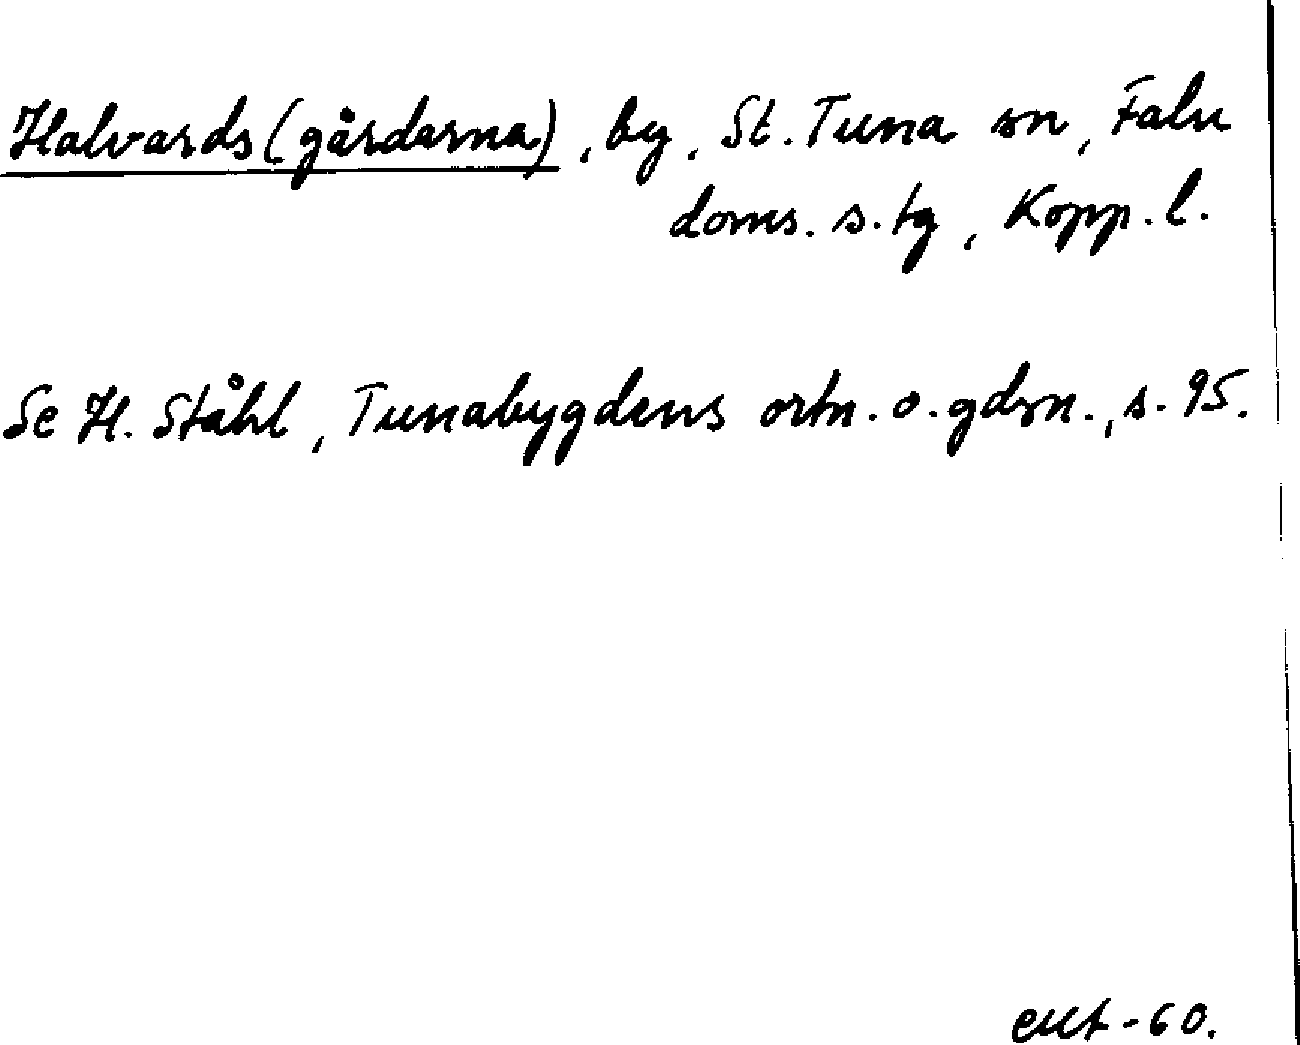 Halvards(gårdarna), by, St. Tuna sn, Falu
doms. s. tg, Kopp. l.
Se H. Ståhl, Tunabygdens ortn. o. gdsn., s. 95.
-60.